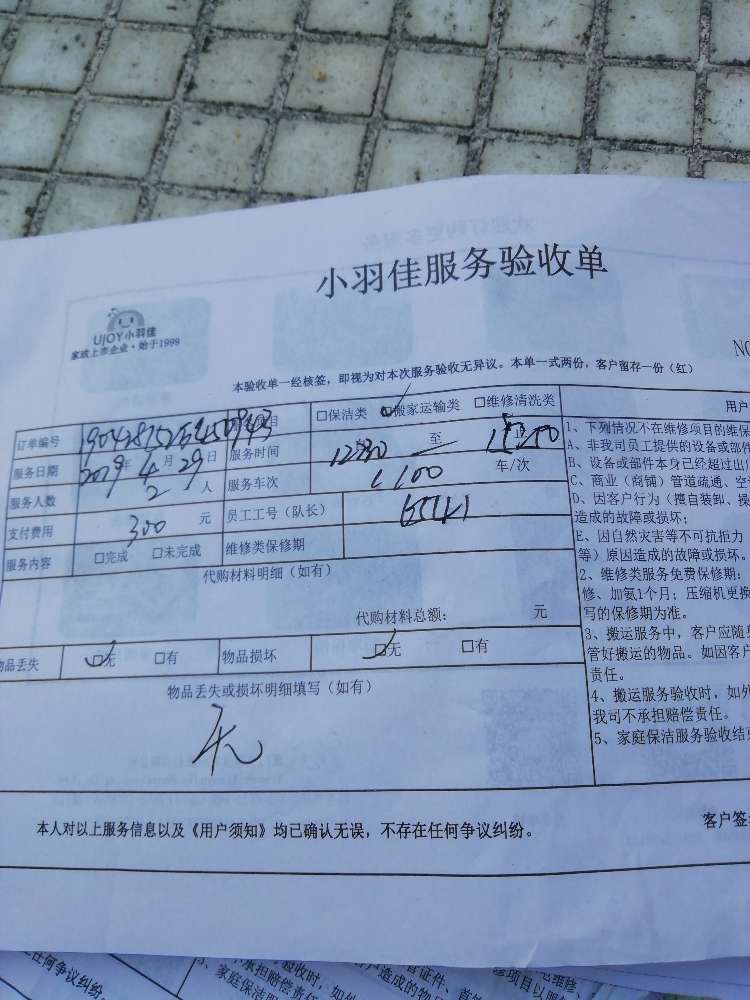 小羽佳服务验收单
UJOY小羽佳
家政上市企业·始于1999
NO
本验收单一经核签，即视为对本次服务验收无异议。本单一式两份，客户留存一份（红）
订单编号 目 □保洁类 ☑搬家运输类 □维修清洗类
服务日期 2019年4月29日 服务时间 至
服务人数 2人 服务车次 车/次
支付费用 300元 员工工号（队长）
服务内容 □完成 □未完成 维修类保修期
代购材料明细（如有）
代购材料总额： 元
物品丢失 ☑无 □有 物品损坏 ☑无 □有
物品丢失或损坏明细填写（如有）
无
用户
1、下列情况不在维修项目的维保
A、非我司员工提供的设备或部件
B、设备或部件本身已经超过出
C、商业（商铺）管道疏通、空
D、因客户行为（擅自装卸、操
造成的故障或损坏；
E、因自然灾害等不可抗拒力
等）原因造成的故障或损坏。
2、维修类服务免费保修期：
修、加氨1个月；压缩机更换
写的保修期为准。
3、搬运服务中，客户应随
管好搬运的物品。如因客户
责任。
4、搬运服务验收时，如外
我司不承担赔偿责任。
5、家庭保洁服务验收结
本人对以上服务信息以及《用户须知》均已确认无误，不存在任何争议纠纷。
客户签
任何争议纠纷。
家庭保洁服